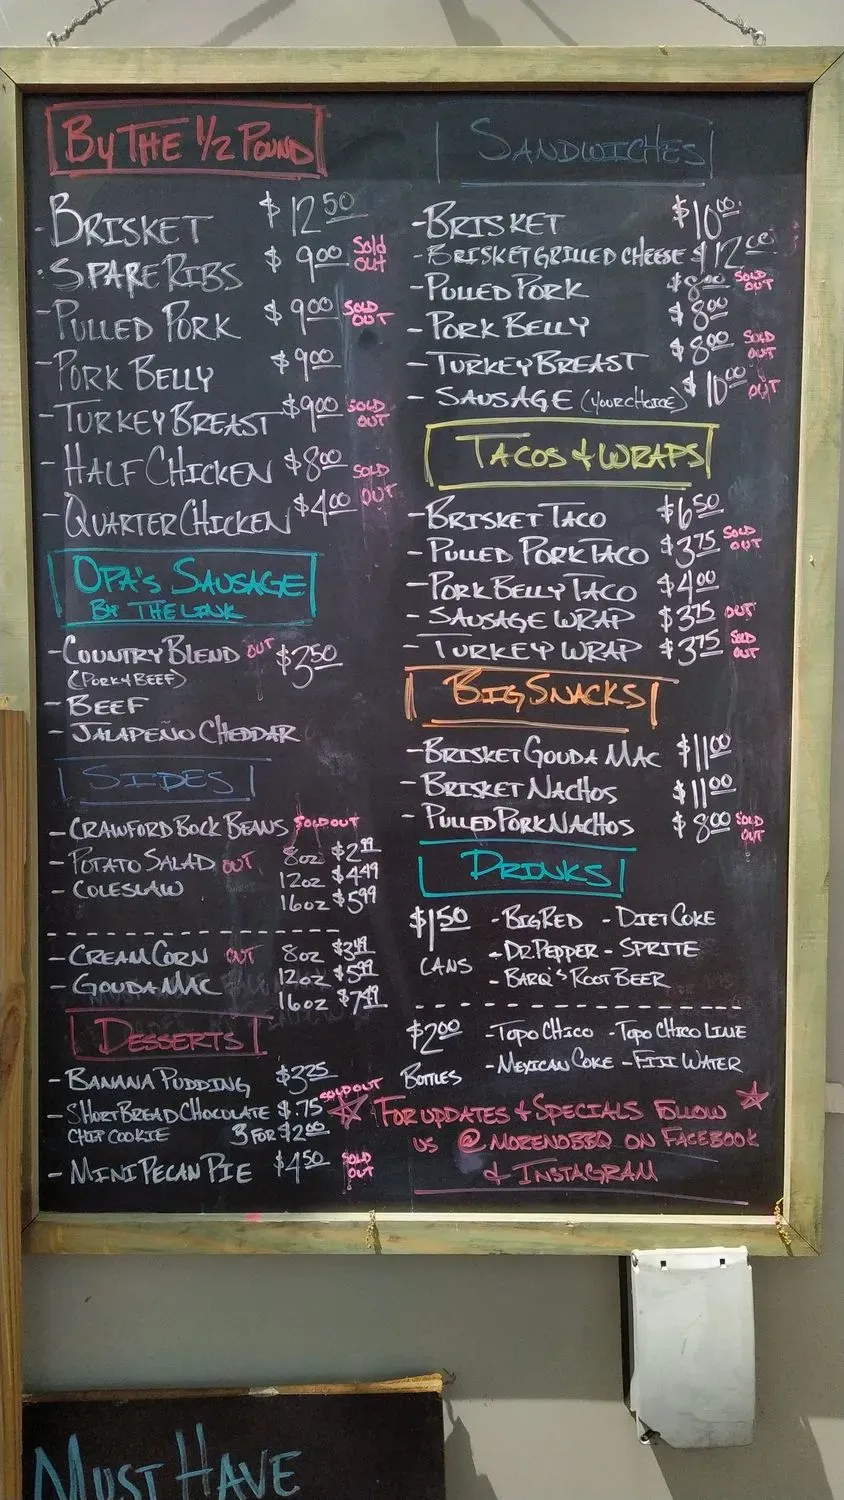 By The 1/2 Pound
- Brisket $12.50
- Spare Ribs $9.00 Sold Out
- Pulled Pork $9.00 Sold Out
- Pork Belly $9.00
- Turkey Breast $9.00 Sold Out
- Half Chicken $8.00 Sold Out
- Quarter Chicken $4.00
Opa's Sausage
By The Link
- Country Blend Out $3.50
(Pork & Beef)
- Beef
- Jalapeño Cheddar
Sides
- Crawford Bock Beans Sold Out
- Potato Salad Out 8oz $2.99
- Coleslaw 12oz $4.49
16oz $5.99
- Cream Corn Out 8oz $3.49
- Gouda Mac 12oz $5.99
16oz $7.49
Desserts
- Banana Pudding $3.25
- Shortbread Chocolate $.75 Sold Out
Chip Cookie 3 for $2.00
- Mini Pecan Pie $4.50 Sold Out
Sandwiches
- Brisket $10.00
- Brisket Grilled Cheese $12.00
- Pulled Pork $8.00 Sold Out
- Pork Belly $8.00
- Turkey Breast $8.00 Sold Out
- Sausage (Your Choice) $10.00 Out
Tacos & Wraps
- Brisket Taco $6.50
- Pulled Pork Taco $3.75 Sold Out
- Pork Belly Taco $4.00
- Sausage Wrap $3.75 Out
- Turkey Wrap $3.75 Sold Out
Big Snacks
- Brisket Gouda Mac $11.00
- Brisket Nachos $11.00
- Pulled Pork Nachos $8.00 Sold Out
Drinks
$1.50 - Big Red - Diet Coke
Cans - Dr. Pepper - Sprite
- Barq's Root Beer
$2.00 - Topo Chico - Topo Chico Lime
Bottles - Mexican Coke - Fiji Water
For updates & Specials Follow
us @morenobbq on Facebook
& Instagram
Must Have